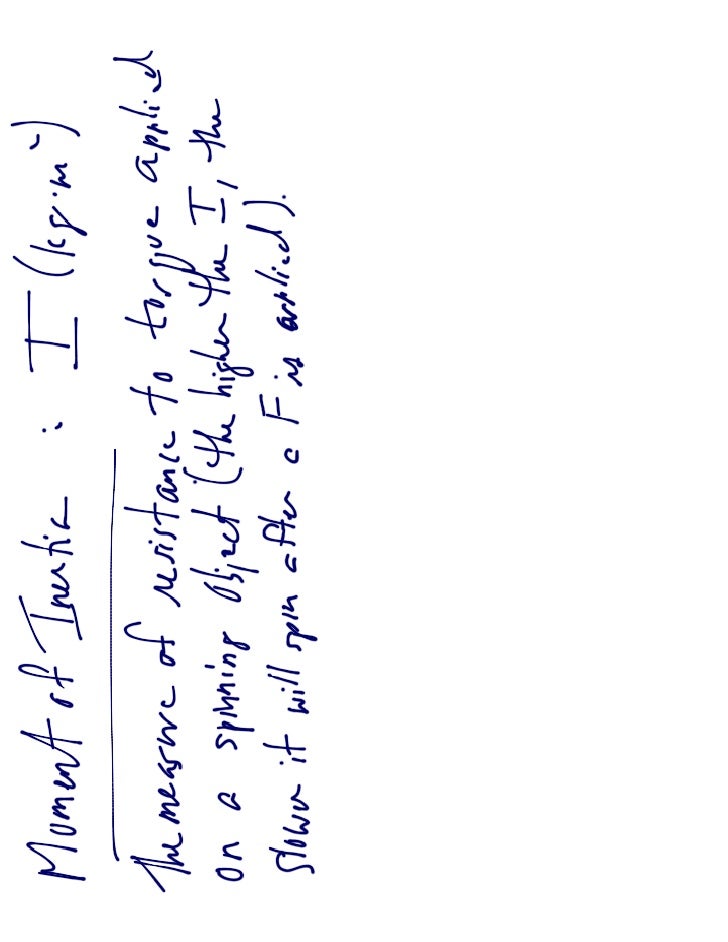 Moment of Inertia : I (kg·m²)
The measure of resistance to torque applied
on a spinning object (the higher the I, the
slower it will spin after a F is applied).